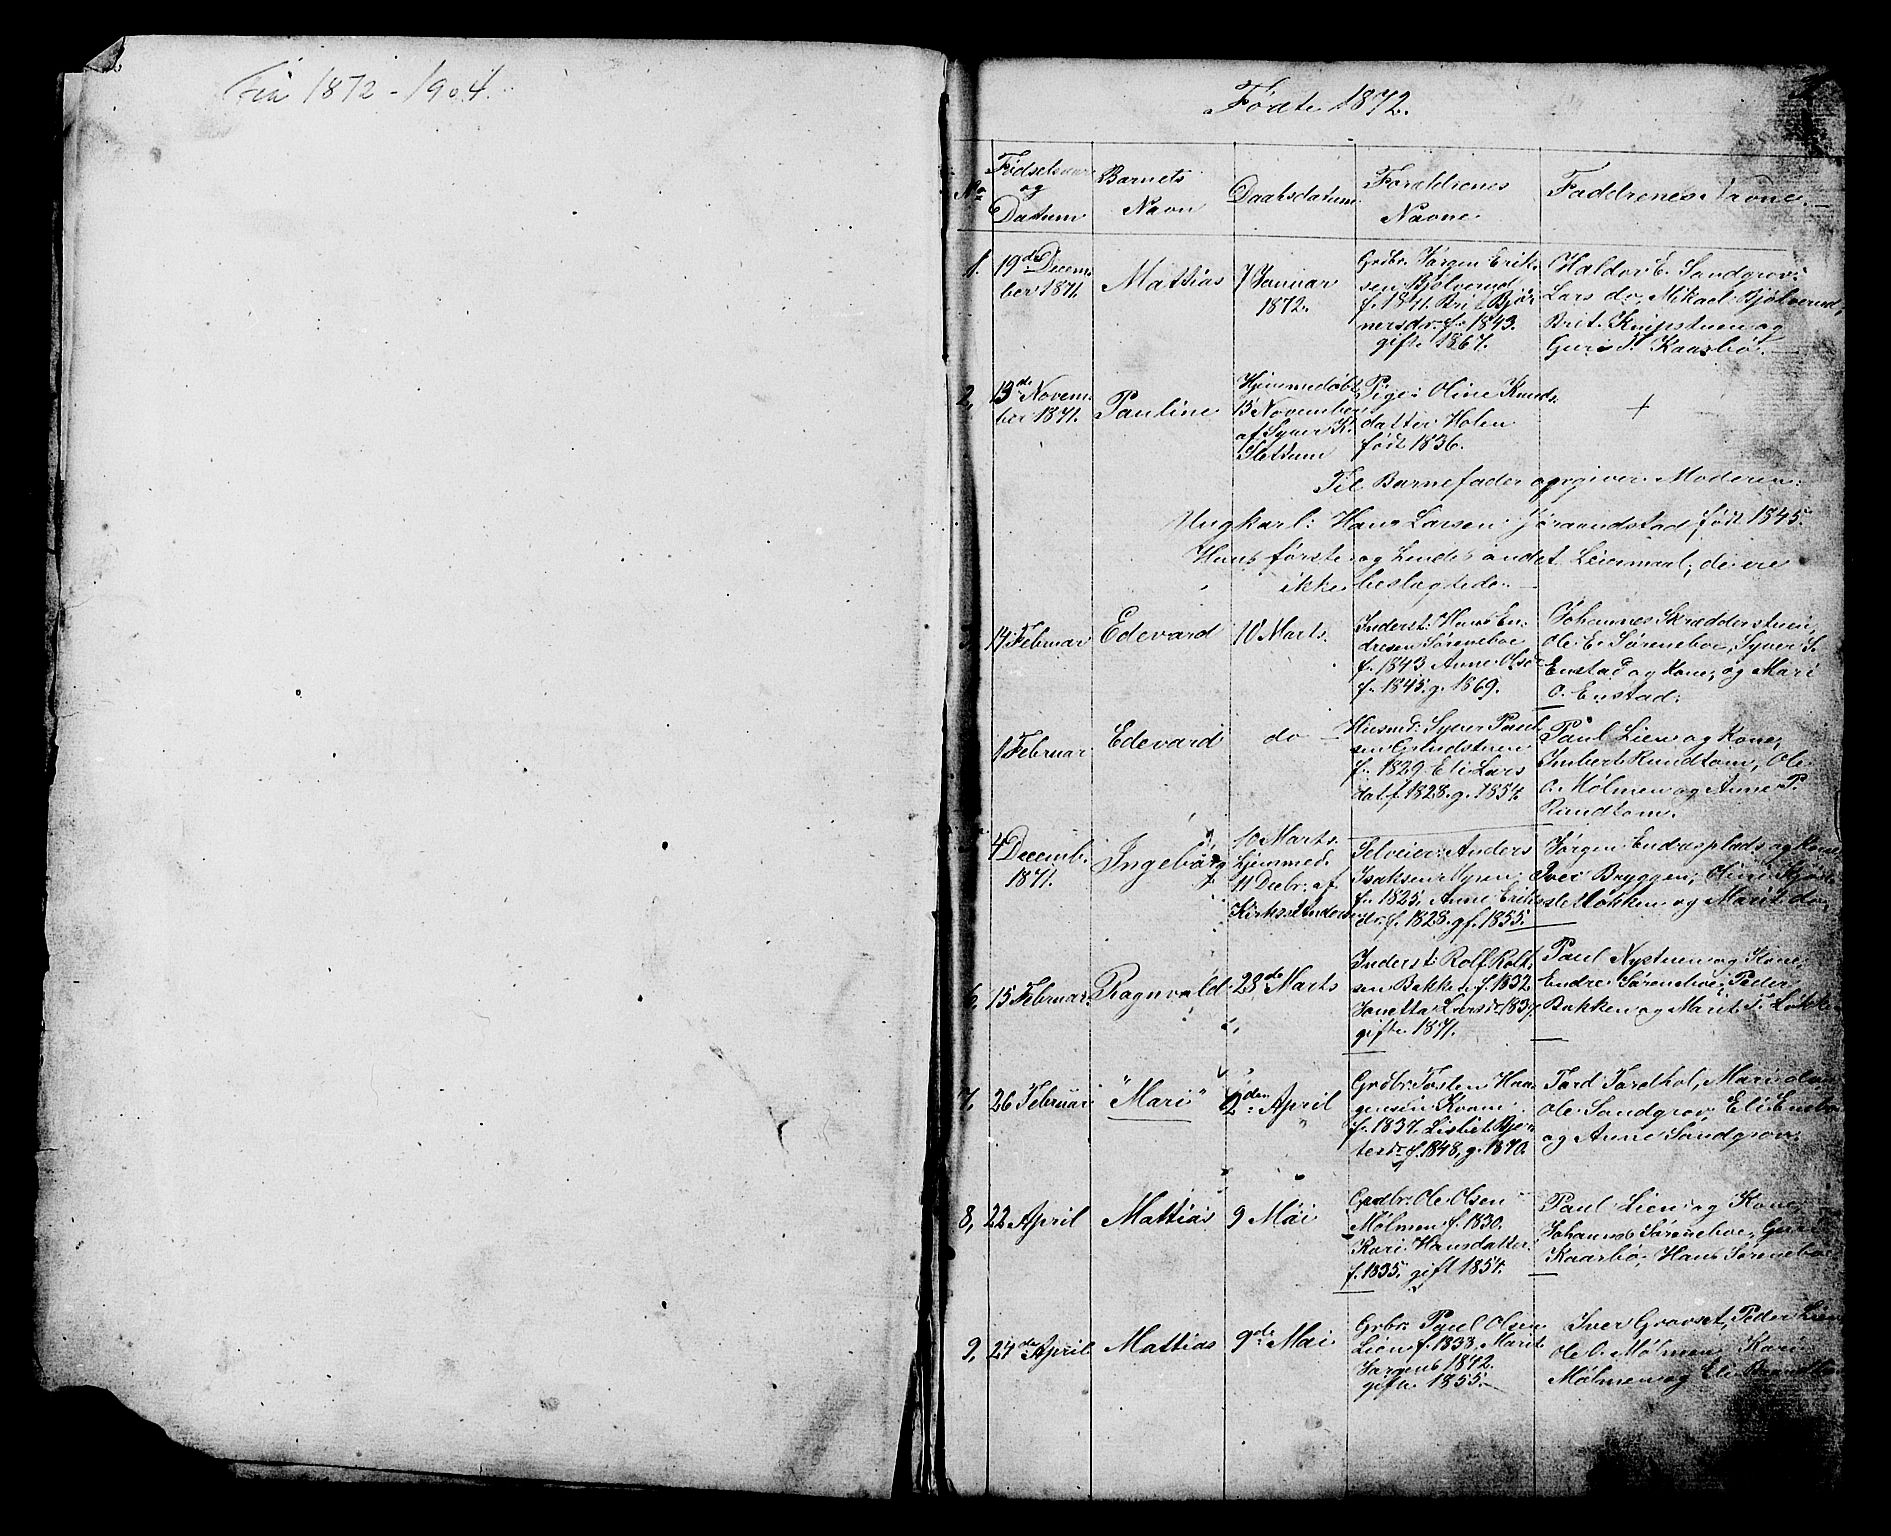 Fra 1872-1904.
Födte 1872.
No
Födselsaar
og
Datum
Barnets
Navn
Daabsdatum
Foræeldrenes
Navne
Faddrenes Navne.
1. 19de Decem-
ber 1871.
Mattias
7 Januar
1872.
Grdbr: Jørgen Erik-
sen Bjølverud
f. 1841. Brit Bjør
nersdr: f. 1843.
gift 1867.
Haldor E. Sandgrov:
Lars do, Mikael Bjølverud,
Brit Knipstuen og
Guri T. Kaarbø.
2, 13de Novem-
ber 1871.
Pauline
Hjemmedøbt
13 November
af Syver K.
Slettum
Pige: Oline Knuds
datter Holen
født 1836.
+
Til Barnefader opgiver Moderen:
Ungkarl: Hans Larsen Joramstad, født 1845.
Hans første og hendes andet Leiermaal, de ere
ikke beslægtede.
3, 14 Februar
Edevard
10 Marts.
Inderst: Hans En-
dresen Søreneboe
f. 1843 Anne Olsdr
f. 1845. g. 1869.
Johannes Skrædderstuen,
Ole E. Søreneboe, Syver S.
Enstad og Kone, og Mari
O. Enstad.
1 Februar
Edevard
do
Husmd: Syver Paul
sen Grindstuen
f. 1829 Eli Lars
dat f. 1828. g. 1854.
Paul Lien og Kone,
Embert Rundtom, Ole
O. Mølmen og Anne P.
Rundtom.
4 Decemb.
1871.
Ingeborg
10 Marts.
hjemmed.
11 Decbr: af
Kirkesanger
Selveier: Anders
Isaksen Myren
f. 1825. Anne Eriks
dr. f. 1828. gf. 1855.
Jørgen Endresplads og Kone
Iver Bryggen, Oline
Løkken og Marit do,
6, 15 Februar.
Ragnvald
28de Marts
Inderst: Rolf Rolf-
sen Bakken f. 1832.
Janetta Larsdr 1837.
gifte 1871.
Paul Nystuen og Kone,
Endre Søreneboe, Peder
Bakken og Marit T. Løkken
7, 26 Februar
"Mari"
2den April
Grdbr: Tosten Haa-
gensen Kvam
f. 1837. Lisbet Bjør
tesdr f. 1848, g. 1870.
Tord Tordhol, Mari do
Ole Sandgrov, Eli Ensbø
og Anne Sandgrov.
8, 22 April
Mattias
9 Mai
Grdbr: Ole Olsen
Mølmen f. 1830.
Kari Hansdatter
f. 1835. gift 1854.
Paul Lien og Kone
Johannes Søreneboe, Guri
Kaarbø, Hans Søreneboe
9, 24de April
Mattias
9de Mai
Grbr: Paul Olsen
Lien f. 1833, Marit
Jørgens 1842.
gifte 1855.
Iver Gravset, Peder Lien
Ole O. Mølmen, Kari
Mølmen og Eli